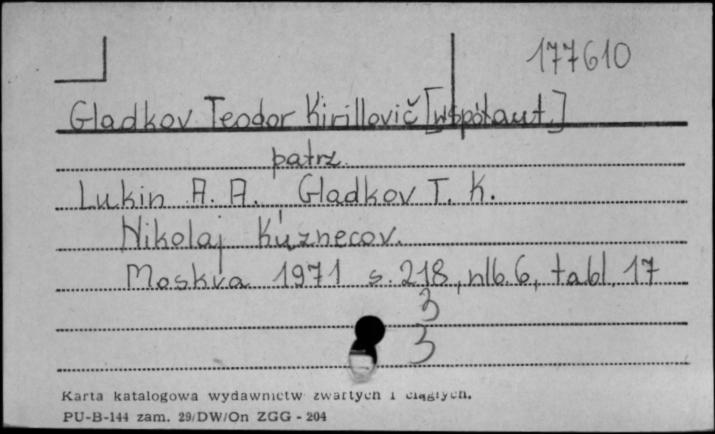 177610
Gladkov Teodor Kirillovič [współaut.]
patrz.
Lukin A. A. Gladkov T. K.
Nikolaj Kuznecov.
Moskva 1971 s. 218, nlb. 6, tabl. 17
3
3
Karta katalogowa wydawnictw zwartych i ciągłych.
PU-B-144 zam. 29/DW/On ZGG - 204